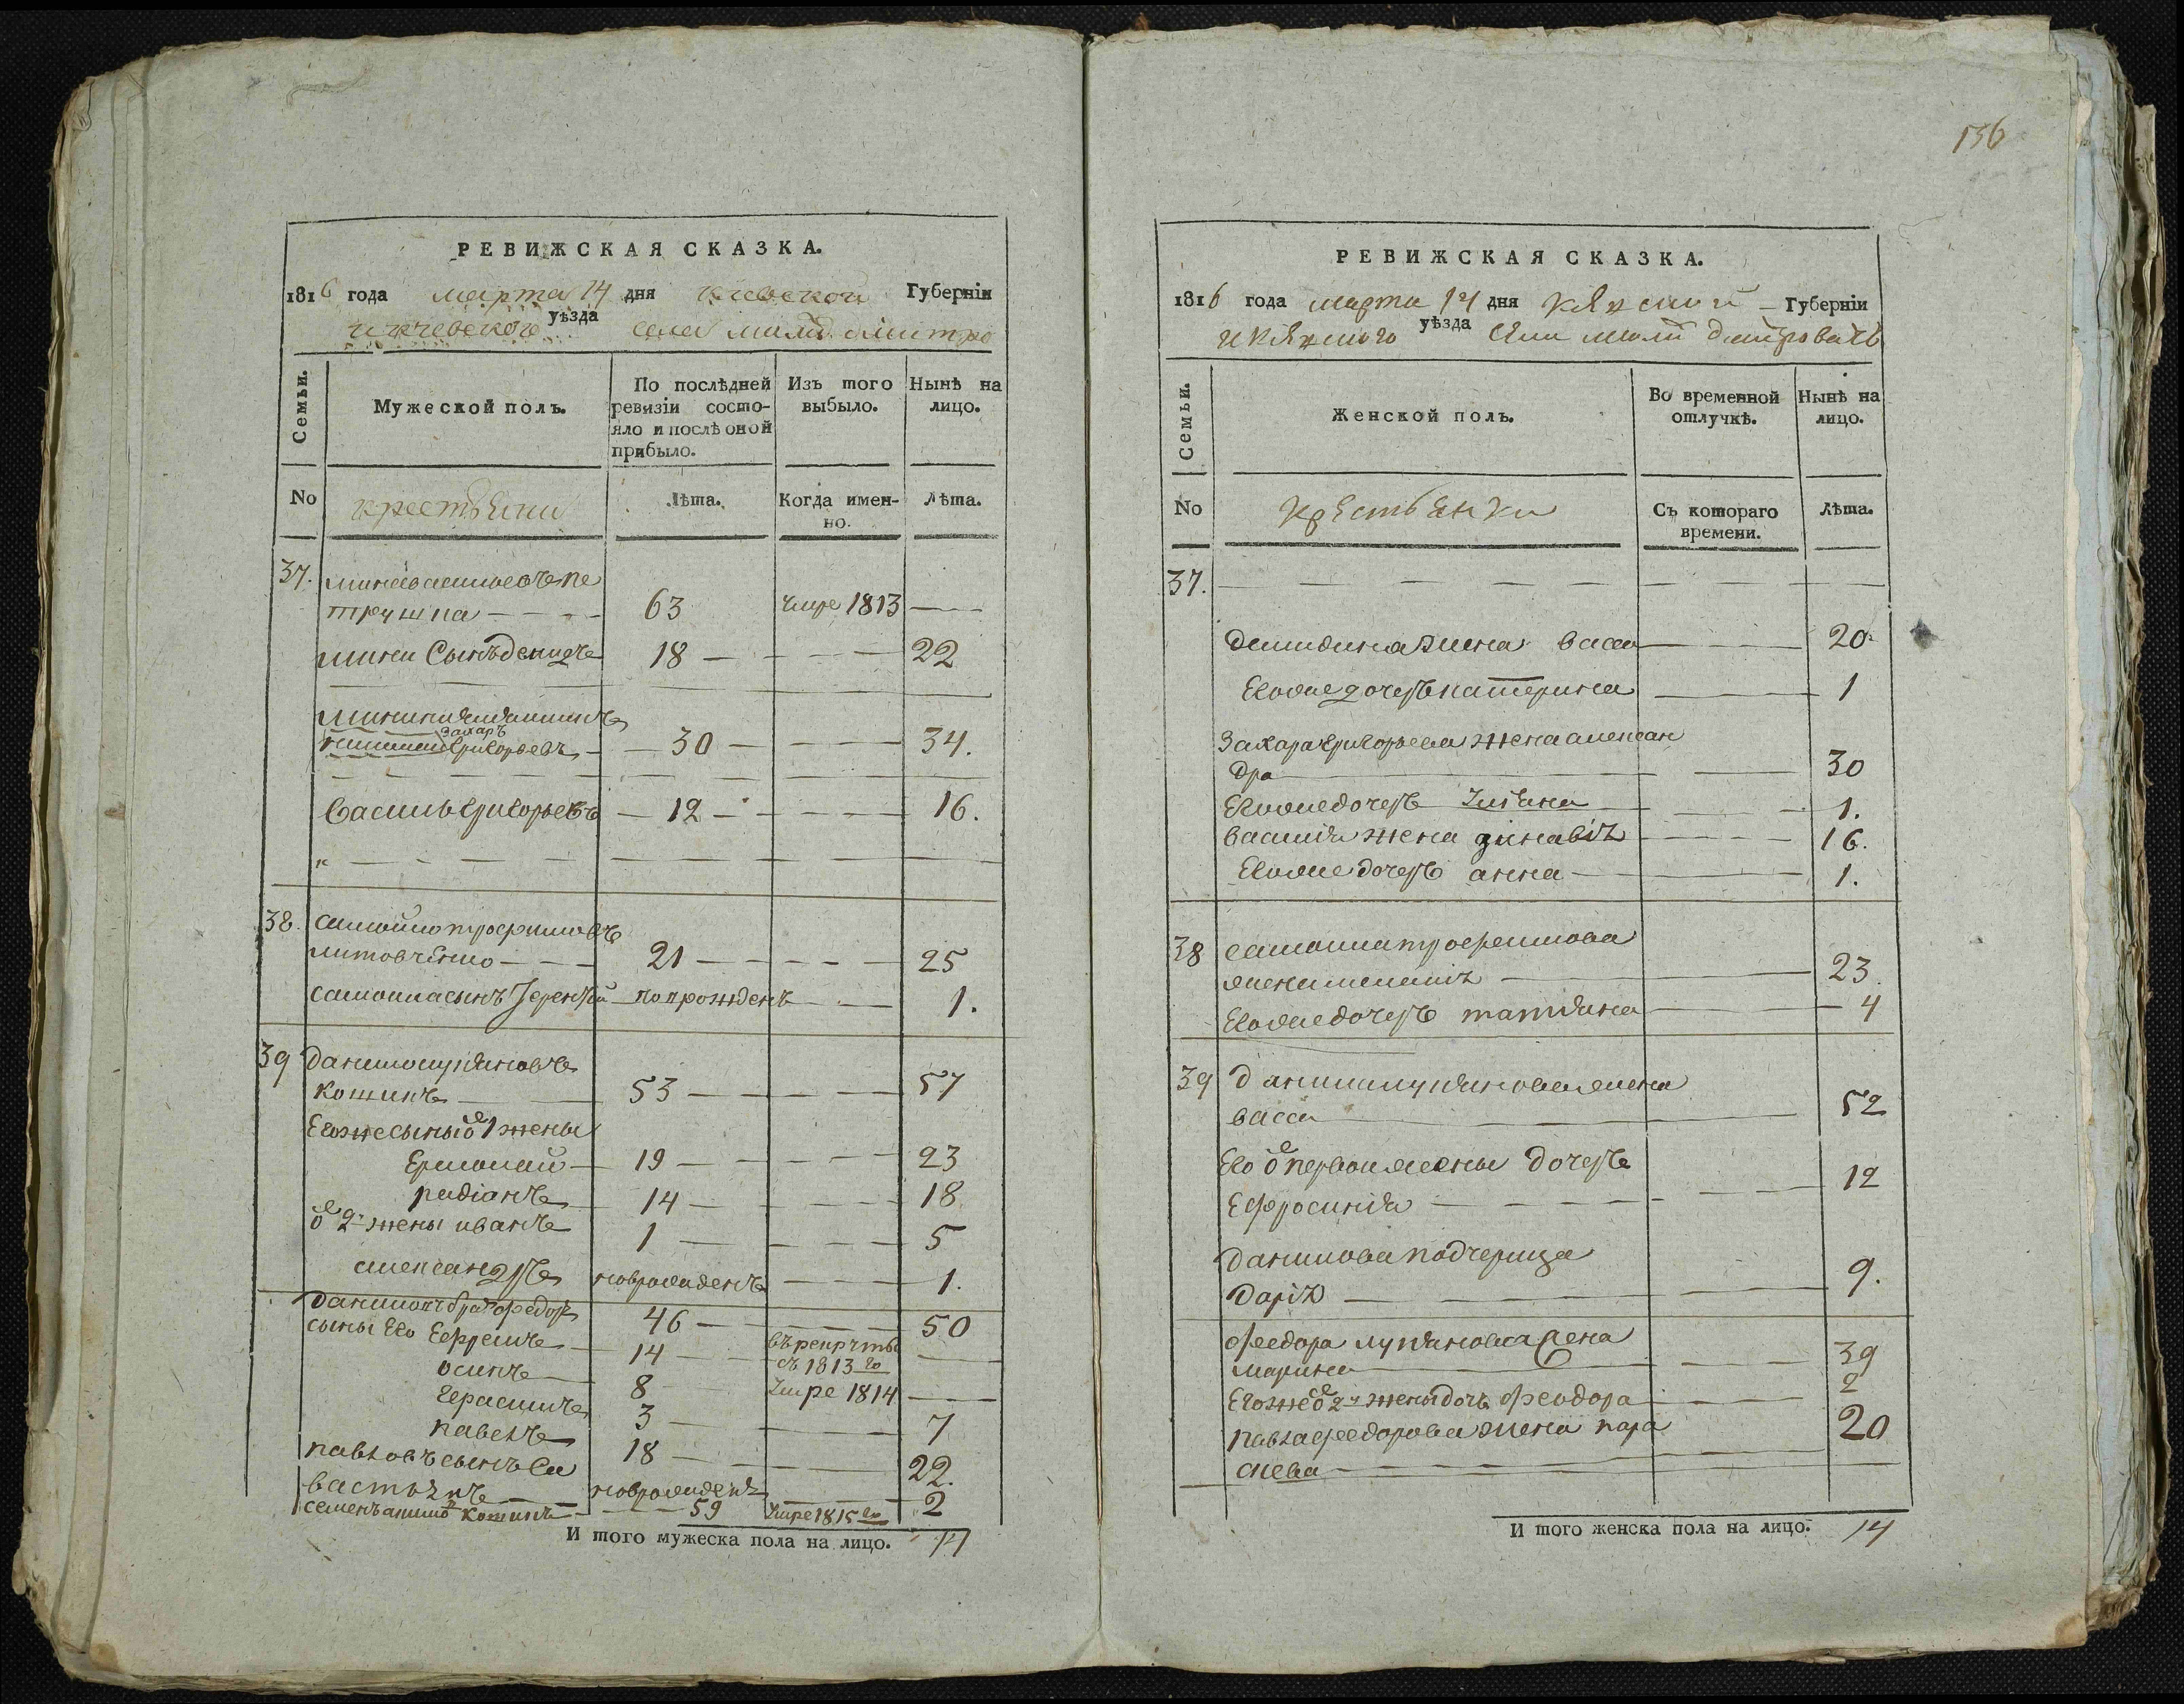 РЕВИЖСКАЯ СКАЗКА.
1816 года марта 14 дня киевской Губернiи
и киевского уѣзда села малод дмитро
Семьи.
Мужеской полъ.
По послѣдней ревизiи состояло и послѣ оной прибыло.
Изъ того выбыло.
Нынѣ на лицо.
No
крестьяни
Лѣта.
Когда именно.
Лѣта.
37. мина васильевъ пе
трушка 63 умре 1813
мини Сынъ демидъ 18 22
захаръ
григорьевъ 30 34.
Василь григорьевъ 12 16.
38. самойло трофимовъ
литовченко 21 25
самоила сынъ Терентiй новорожденъ 1.
39 данило лукяновъ
кошикъ 53 57
Егожесыны о 1 жены
Ермолай 19 23
радiанъ 14 18
о 2 жены иванъ 1 5
александръ новорожденъ 1.
данилов братъ федоръ 46 50
сыны Его Ефремъ 14 въ рекруты
съ 1813 го
осипъ 8 Умре 1814
герасимъ 3 7
павелъ 18 22.
павловъ сынъ са
вастьянъ новорожденъ 2
семенъ Кошикъ 59 Умре 1815 го
И того мужеска пола на лицо. 14
136
РЕВИЖСКАЯ СКАЗКА.
1816 года марта 14 дня кiевской Губернiи
и кiевского уѣзда Села малой дмитровки
Семьи.
Женской полъ.
Во временной отлучкѣ.
Нынѣ на лицо.
No
крестьянки
Съ котораго времени.
Лѣта.
37.
демидина жена васса 20
Егоже дочеръ катерина 1
Захара григорьева жена алексан
дра 30
Егоже дочеръ Улiяна 1.
василя жена зинавiя 16.
Егоже дочеръ анна 1.
38 самоила трофимова
жена меланiя 23.
Егоже дочеръ татияна 4
39 данила лукянова жена
васса 52
Его о первой жены дочеръ
Ефросинiя 12
данилова падчерица
Дарiя 9.
феедора лукянова жена
марина 39
Егоже о 2 жены дочъ феодора 2
павла федорова жена пара
скева 20
И того женска пола на лицо. 14